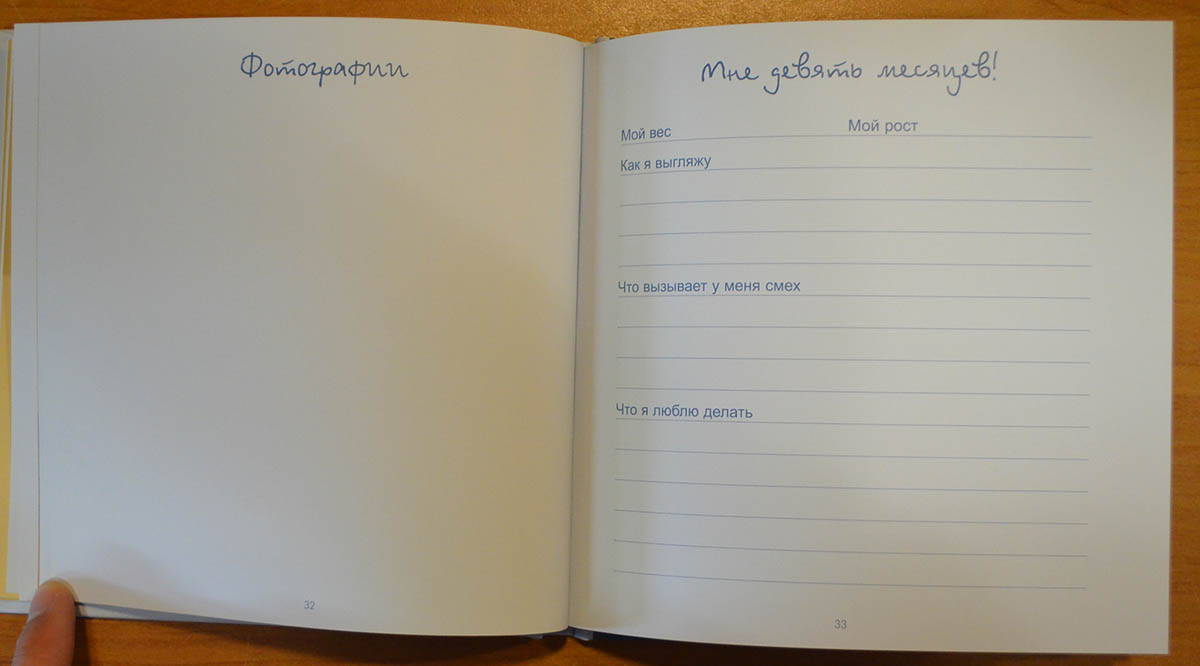 Фотографии
32
Мне девять месяцев!
Мой вес Мой рост
Как я выгляжу
Что вызывает у меня смех
Что я люблю делать
33